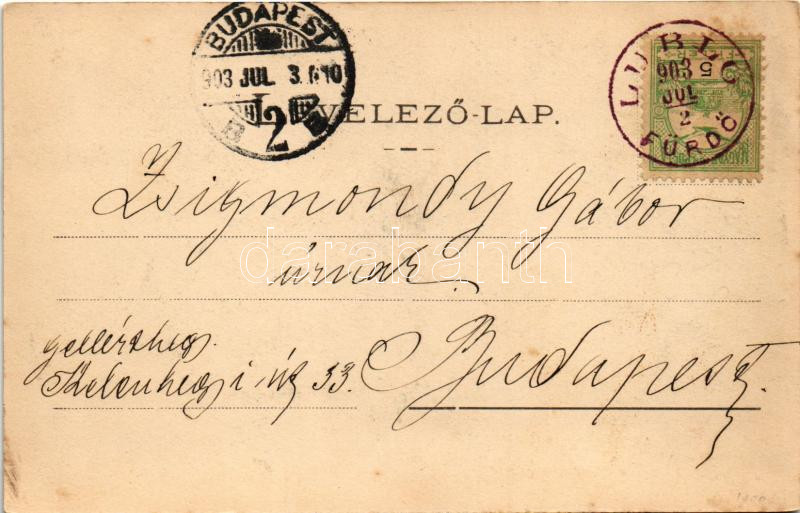 BUDAPEST
903 JUL 3
2
B B
VELEZŐ-LAP.
LUBLÓ
903
JUL
2
FÜRDŐ
Zsigmondy Gábor
úrnak.
darabanth
Gellérthegy.
Kelenhegyi út 33.
Budapest.